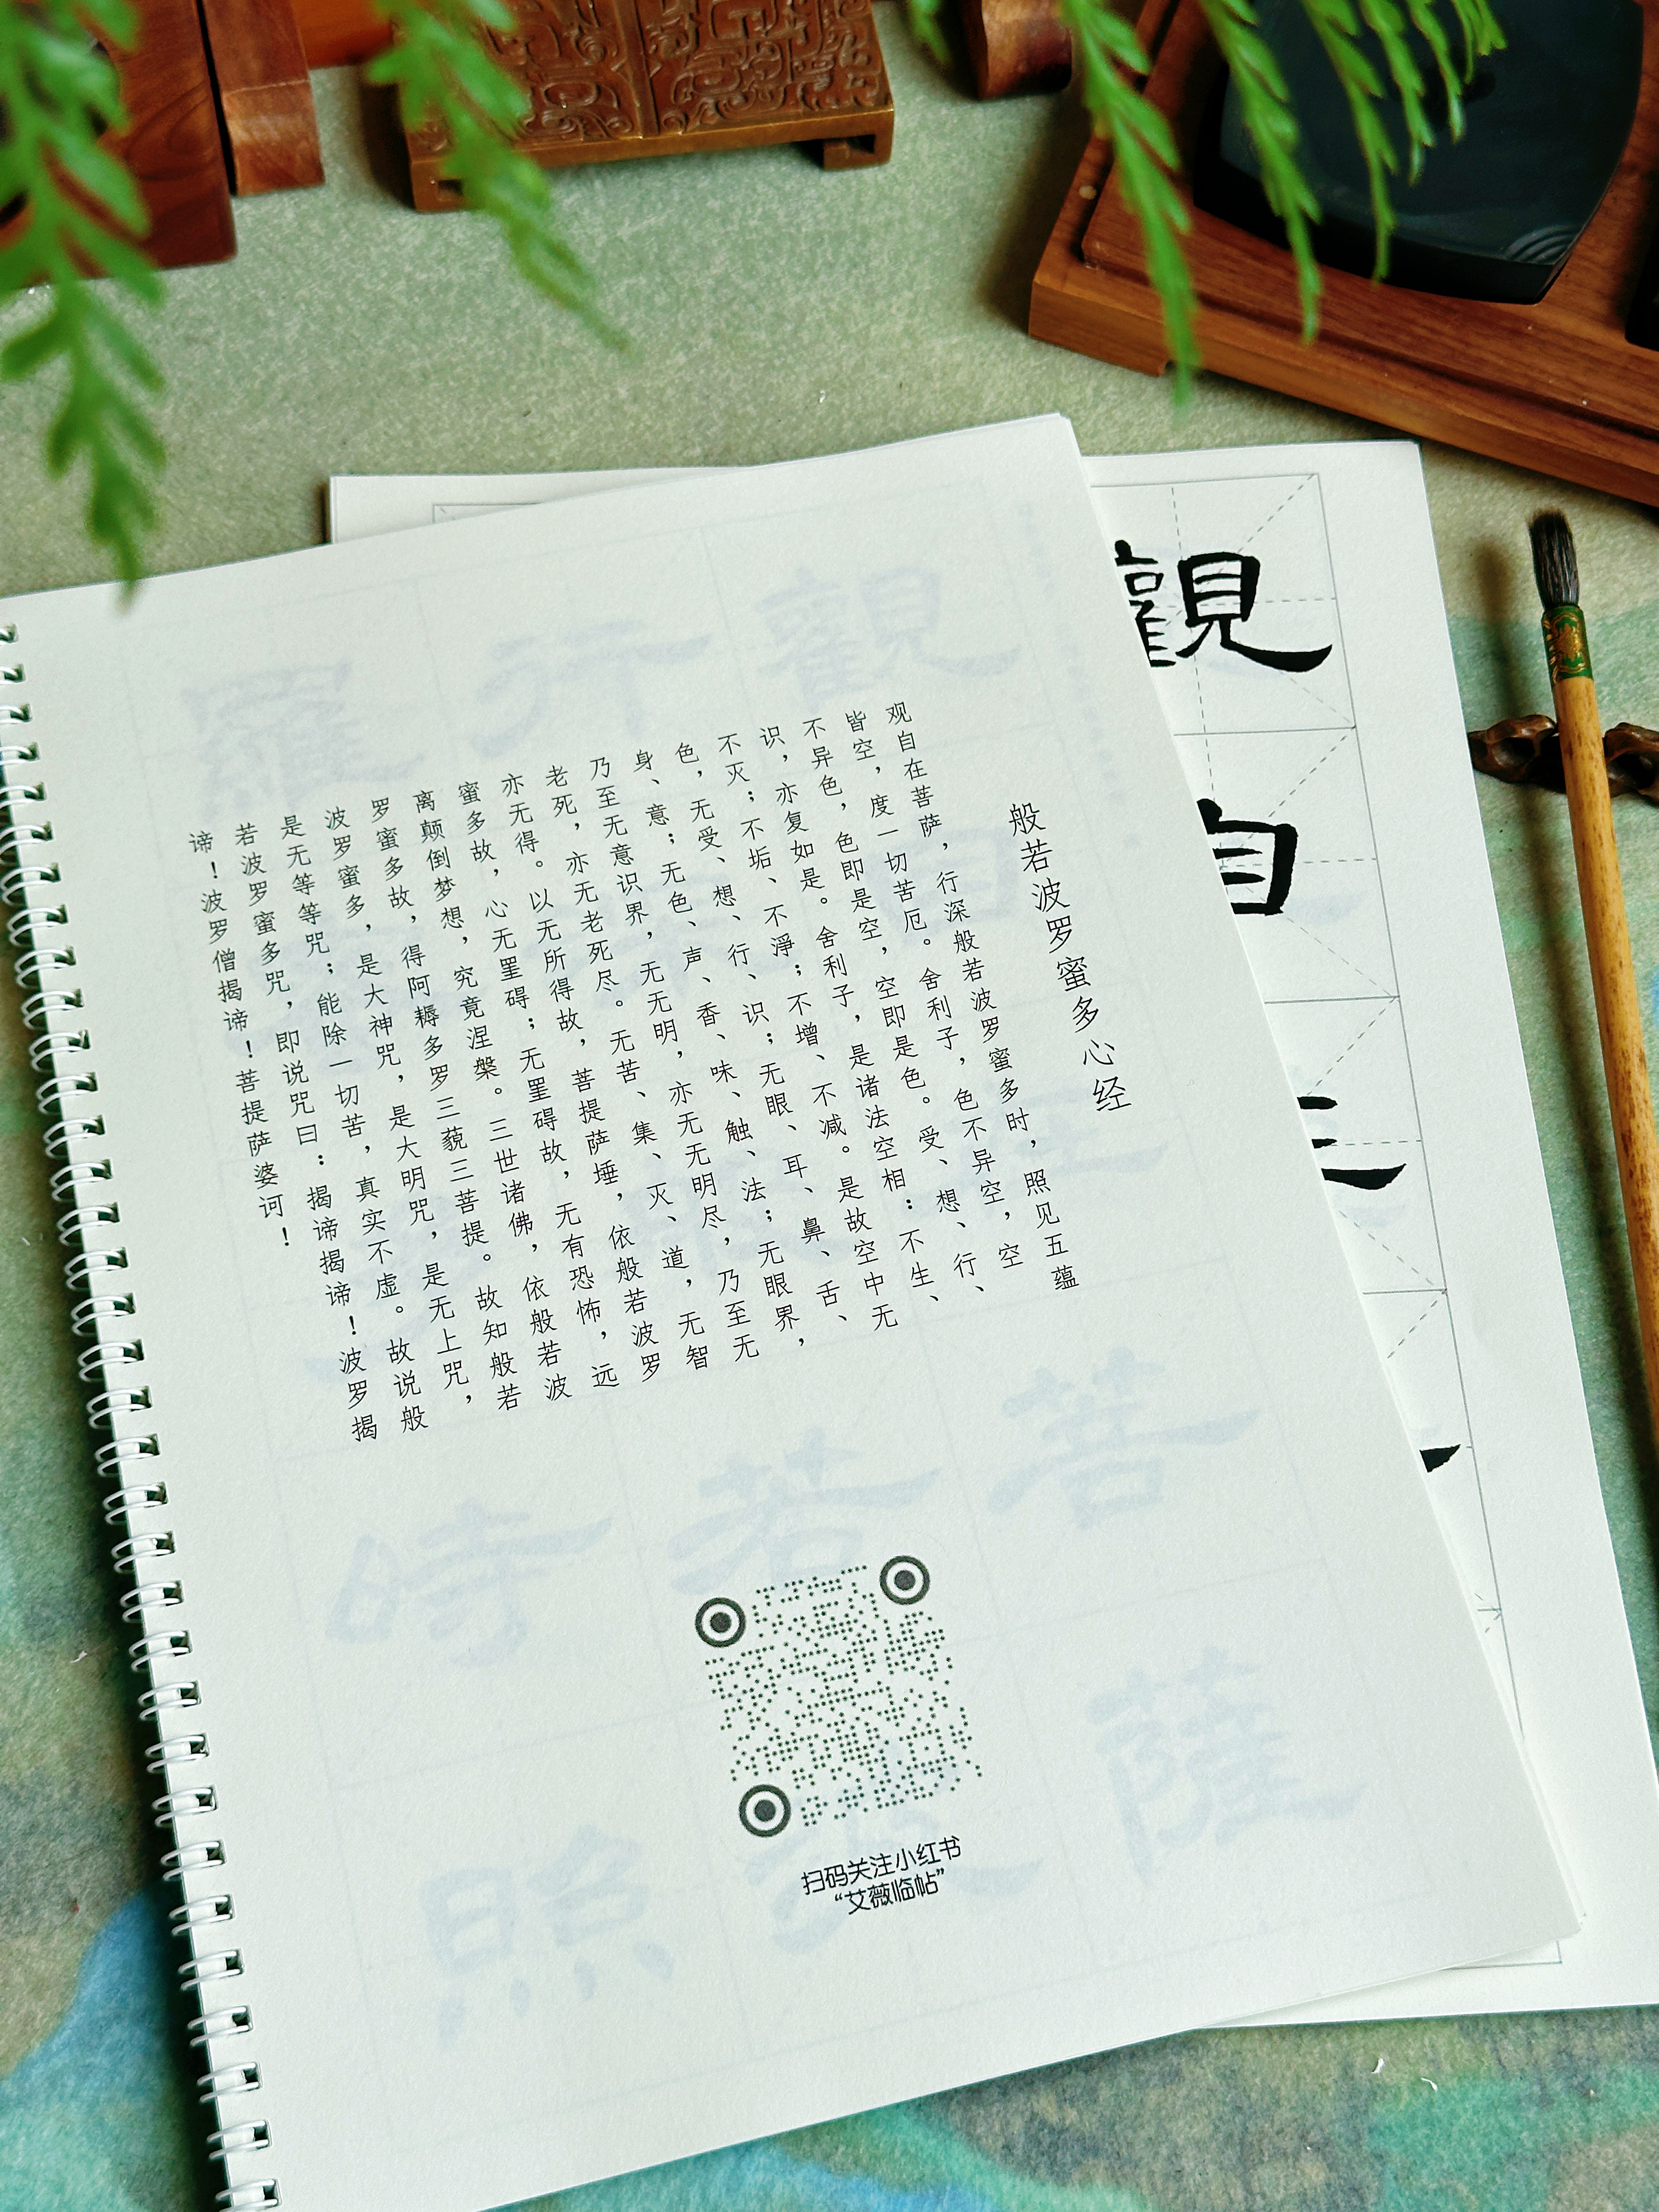 觀自
般若波罗蜜多心经
观自在菩萨，行深般若波罗蜜多时，照见五蕴
皆空，度一切苦厄。舍利子，色不异空，空
不异色，色即是空，空即是色。受、想、行、
识，亦复如是。舍利子，是诸法空相：不生、
不灭；不垢、不淨；不增、不减。是故空中无
色，无受、想、行、识；无眼、耳、鼻、舌、
身、意；无色、声、香、味、触、法；无眼界，
乃至无意识界，无无明，亦无无明尽，乃至无
老死，亦无老死尽。无苦、集、灭、道，无智
亦无得。以无所得故，菩提萨埵，依般若波罗
蜜多故，心无罣碍；无罣碍故，无有恐怖，远
离颠倒梦想，究竟涅槃。三世诸佛，依般若波
罗蜜多故，得阿耨多罗三藐三菩提。故知般若
波罗蜜多，是大神咒，是大明咒，是无上咒，
是无等等咒；能除一切苦，真实不虚。故说般
若波罗蜜多咒，即说咒曰：揭谛揭谛！波罗揭
谛！波罗僧揭谛！菩提萨婆诃！
扫码关注小红书
“艾薇临帖”